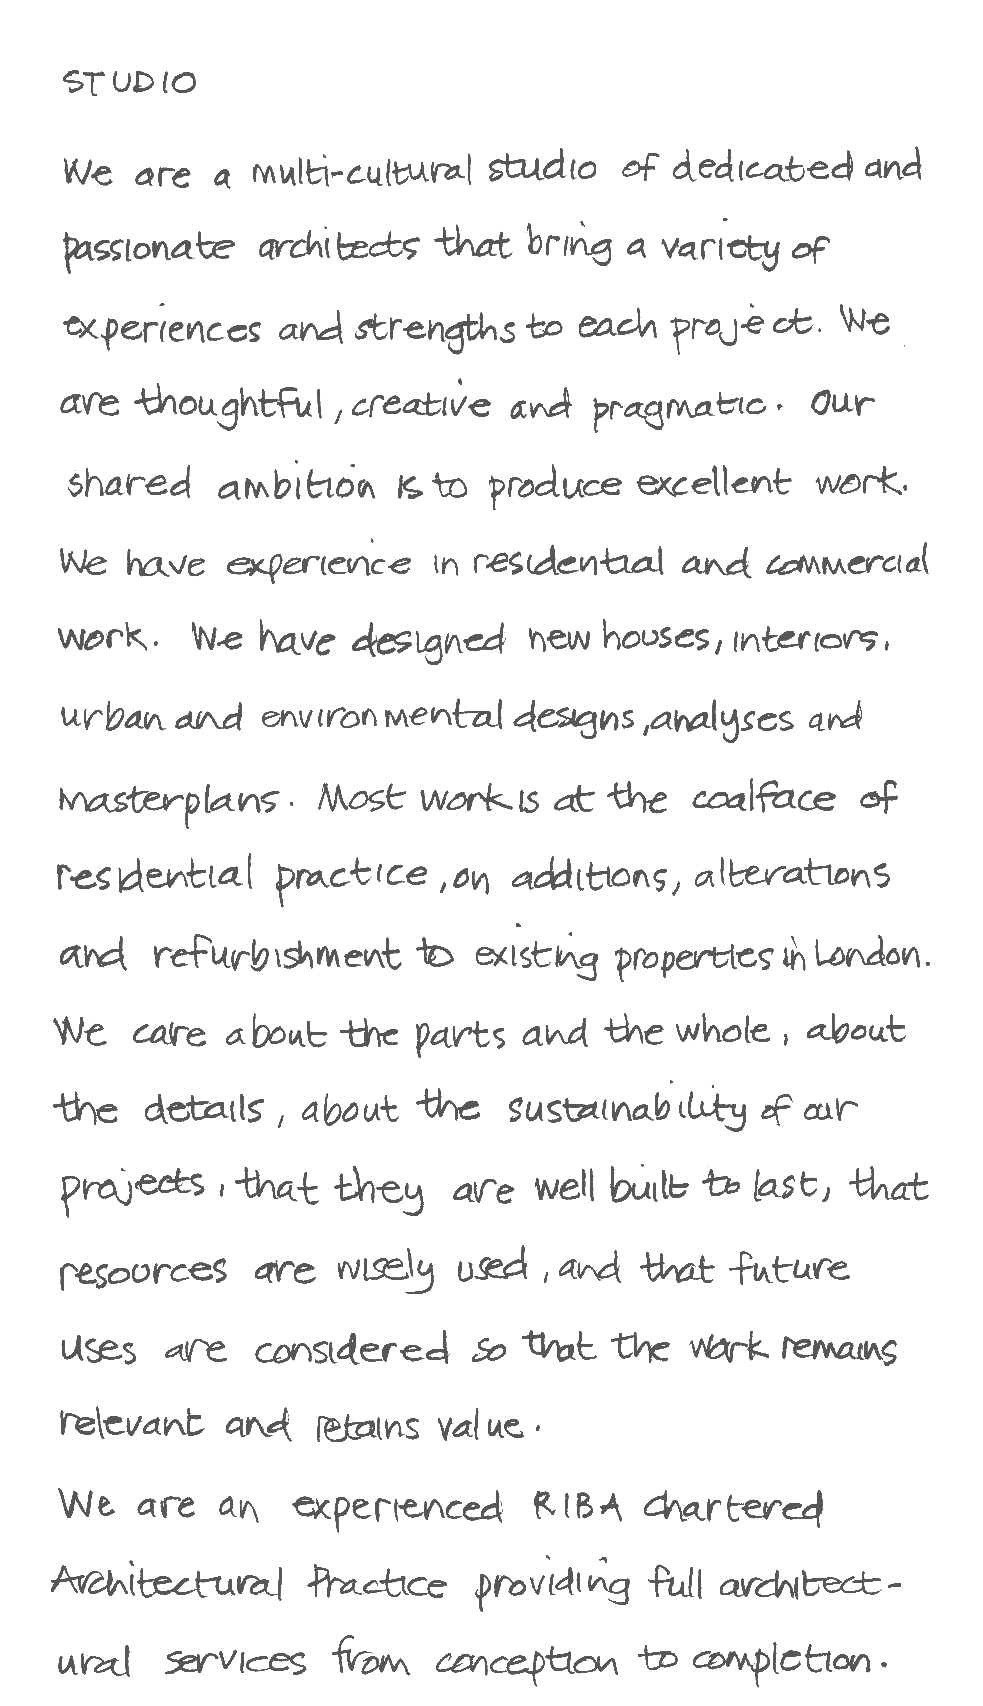 STUDIO
We are a multi-cultural studio of dedicated and
passionate architects that bring a variety of
experiences and strengths to each project. We
are thoughtful, creative and pragmatic. Our
shared ambition is to produce excellent work.
We have experience in residential and commercial
work. We have designed new houses, interiors,
urban and environmental designs, analyses and
masterplans. Most work is at the coalface of
residential practice, on additions, alterations
and refurbishment to existing properties in London.
We care about the parts and the whole, about
the details, about the sustainability of our
projects, that they are well built to last, that
resources are wisely used, and that future
uses are considered so that the work remains
relevant and retains value.
We are an experienced RIBA chartered
Architectural Practice providing full architect-
ural services from conception to completion.